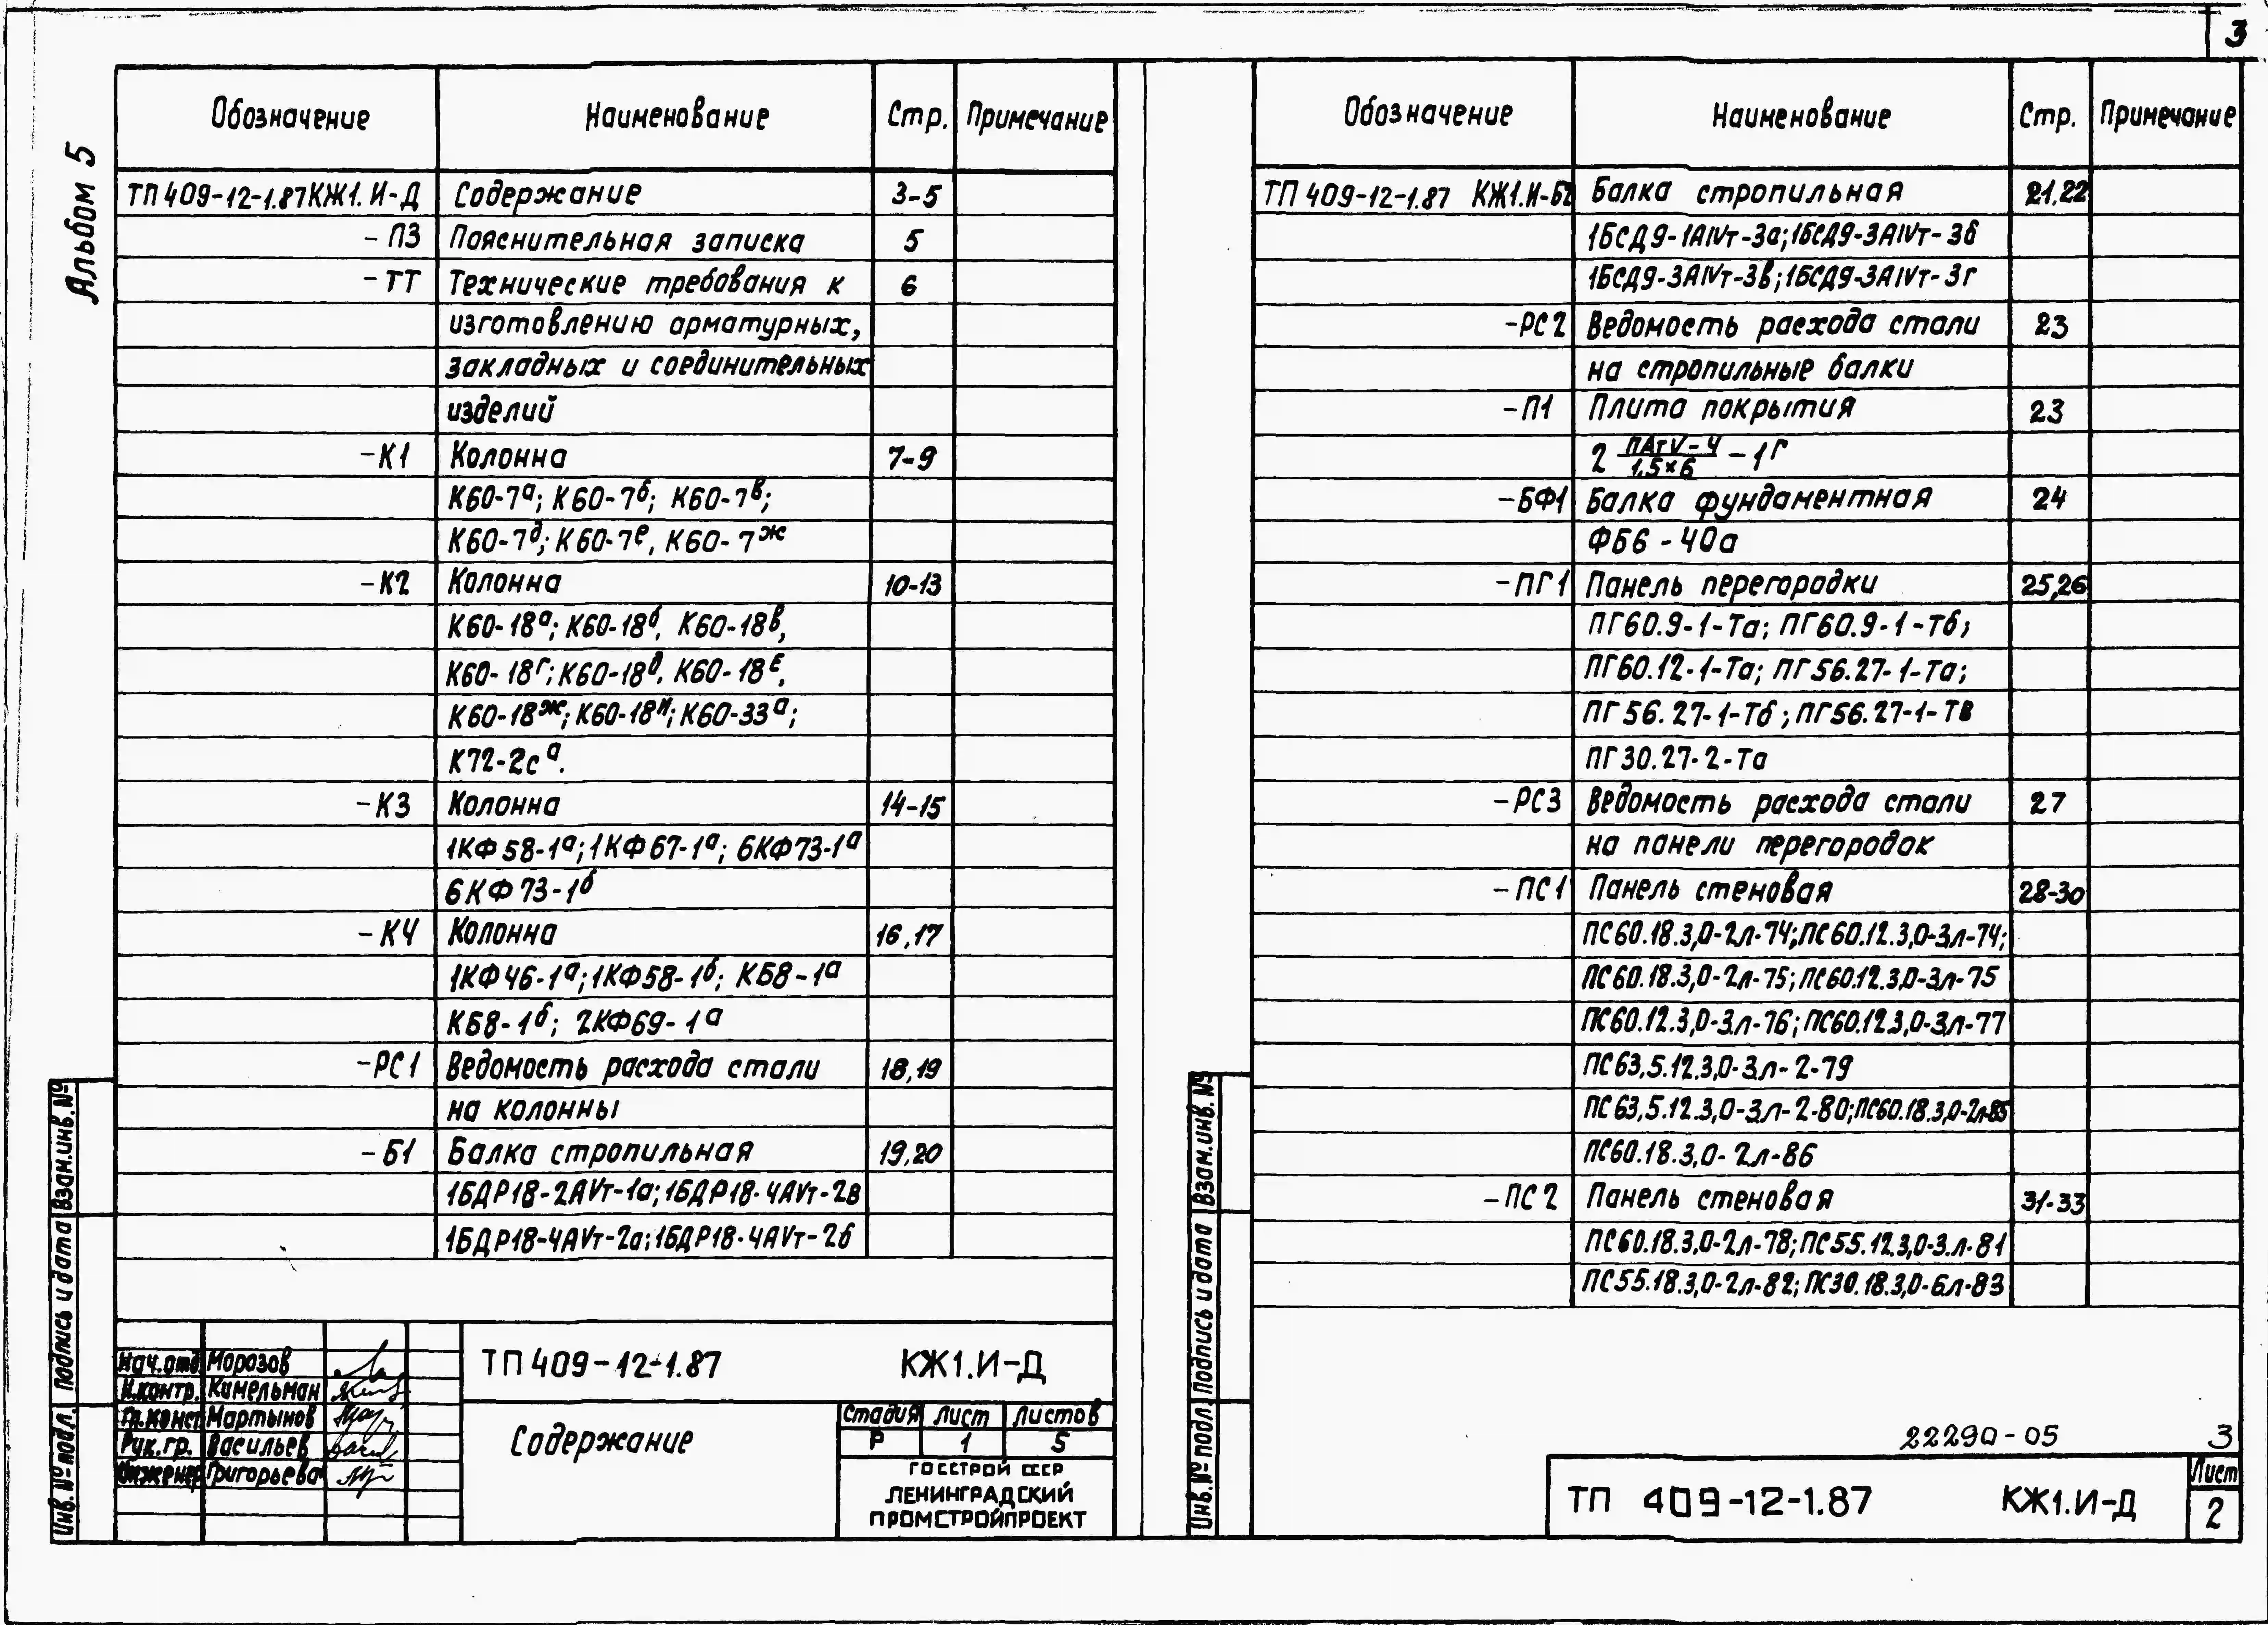 3
Альбом 5
Обозначение Наименование Стр. Примечание
ТП409-12-1.87КЖ1.И-Д Содержание 3-5
-ПЗ Пояснительная записка 5
-ТТ Технические требования к 6
изготовлению арматурных,
закладных и соединительных
изделий
-К1 Колонна 7-9
К60-7а; К60-7б; К60-7в;
К60-7д; К60-7е, К60-7ж
-К2 Колонна 10-13
К60-18а; К60-18б, К60-18в,
К60-18г; К60-18д, К60-18е,
К60-18ж; К60-18и; К60-33а;
К72-2са.
-К3 Колонна 14-15
1КФ58-1а; 1КФ67-1а; 6КФ73-1а
6КФ73-1б
-К4 Колонна 16,17
1КФ46-1а; 1КФ58-1б; КБ8-1а
КБ8-1б; 2КФ69-1а
-РС1 Ведомость расхода стали 18,19
на колонны
-Б1 Балка стропильная 19,20
1БДР18-2АVт-1а; 1БДР18-4АVт-2в
1БДР18-4АVт-2а; 1БДР18-4АVт-2б
Нач.отд. Морозов
Н.контр. Кимельман
Гл.конст. Мартынов
Рук.гр. Васильев
Инженер Григорьева
ТП409-12-1.87 КЖ1.И-Д
Содержание
Стадия Лист Листов
Р 1 5
ГОССТРОЙ СССР
ЛЕНИНГРАДСКИЙ
ПРОМСТРОЙПРОЕКТ
Инв.№подл. Подпись и дата Взам.инв.№
Обозначение Наименование Стр. Примечание
ТП409-12-1.87 КЖ1.И-Б2 Балка стропильная 21,22
1БСД9-1АIVт-3а; 1БСД9-3АIVт-3б
1БСД9-3АIVт-3в; 1БСД9-3АIVт-3г
-РС2 Ведомость расхода стали 23
на стропильные балки
-П1 Плита покрытия 23
2 ПАтV-4/1,5×6 -1Г
-БФ1 Балка фундаментная 24
ФБ6-40а
-ПГ1 Панель перегородки 25,26
ПГ60.9-1-Та; ПГ60.9-1-Тб;
ПГ60.12-1-Та; ПГ56.27-1-Та;
ПГ56.27-1-Тб; ПГ56.27-1-Тв
ПГ30.27-2-Та
-РС3 Ведомость расхода стали 27
на панели перегородок
-ПС1 Панель стеновая 28-30
ПС60.18.3,0-2л-74; ПС60.12.3,0-3л-74;
ПС60.18.3,0-2л-75; ПС60.12.3,0-3л-75
ПС60.12.3,0-3л-76; ПС60.12.3,0-3л-77
ПС63,5.12.3,0-3л-2-79
ПС63,5.12.3,0-3л-2-80; ПС60.18.3,0-2л-85
ПС60.18.3,0-2л-86
-ПС2 Панель стеновая 31-33
ПС60.18.3,0-2л-78; ПС55.12.3,0-3л-81
ПС55.18.3,0-2л-82; ПС30.18.3,0-6л-83
22290-05 3
ТП 409-12-1.87 КЖ1.И-Д
Лист
2
Инв.№подл. Подпись и дата Взам.инв.№